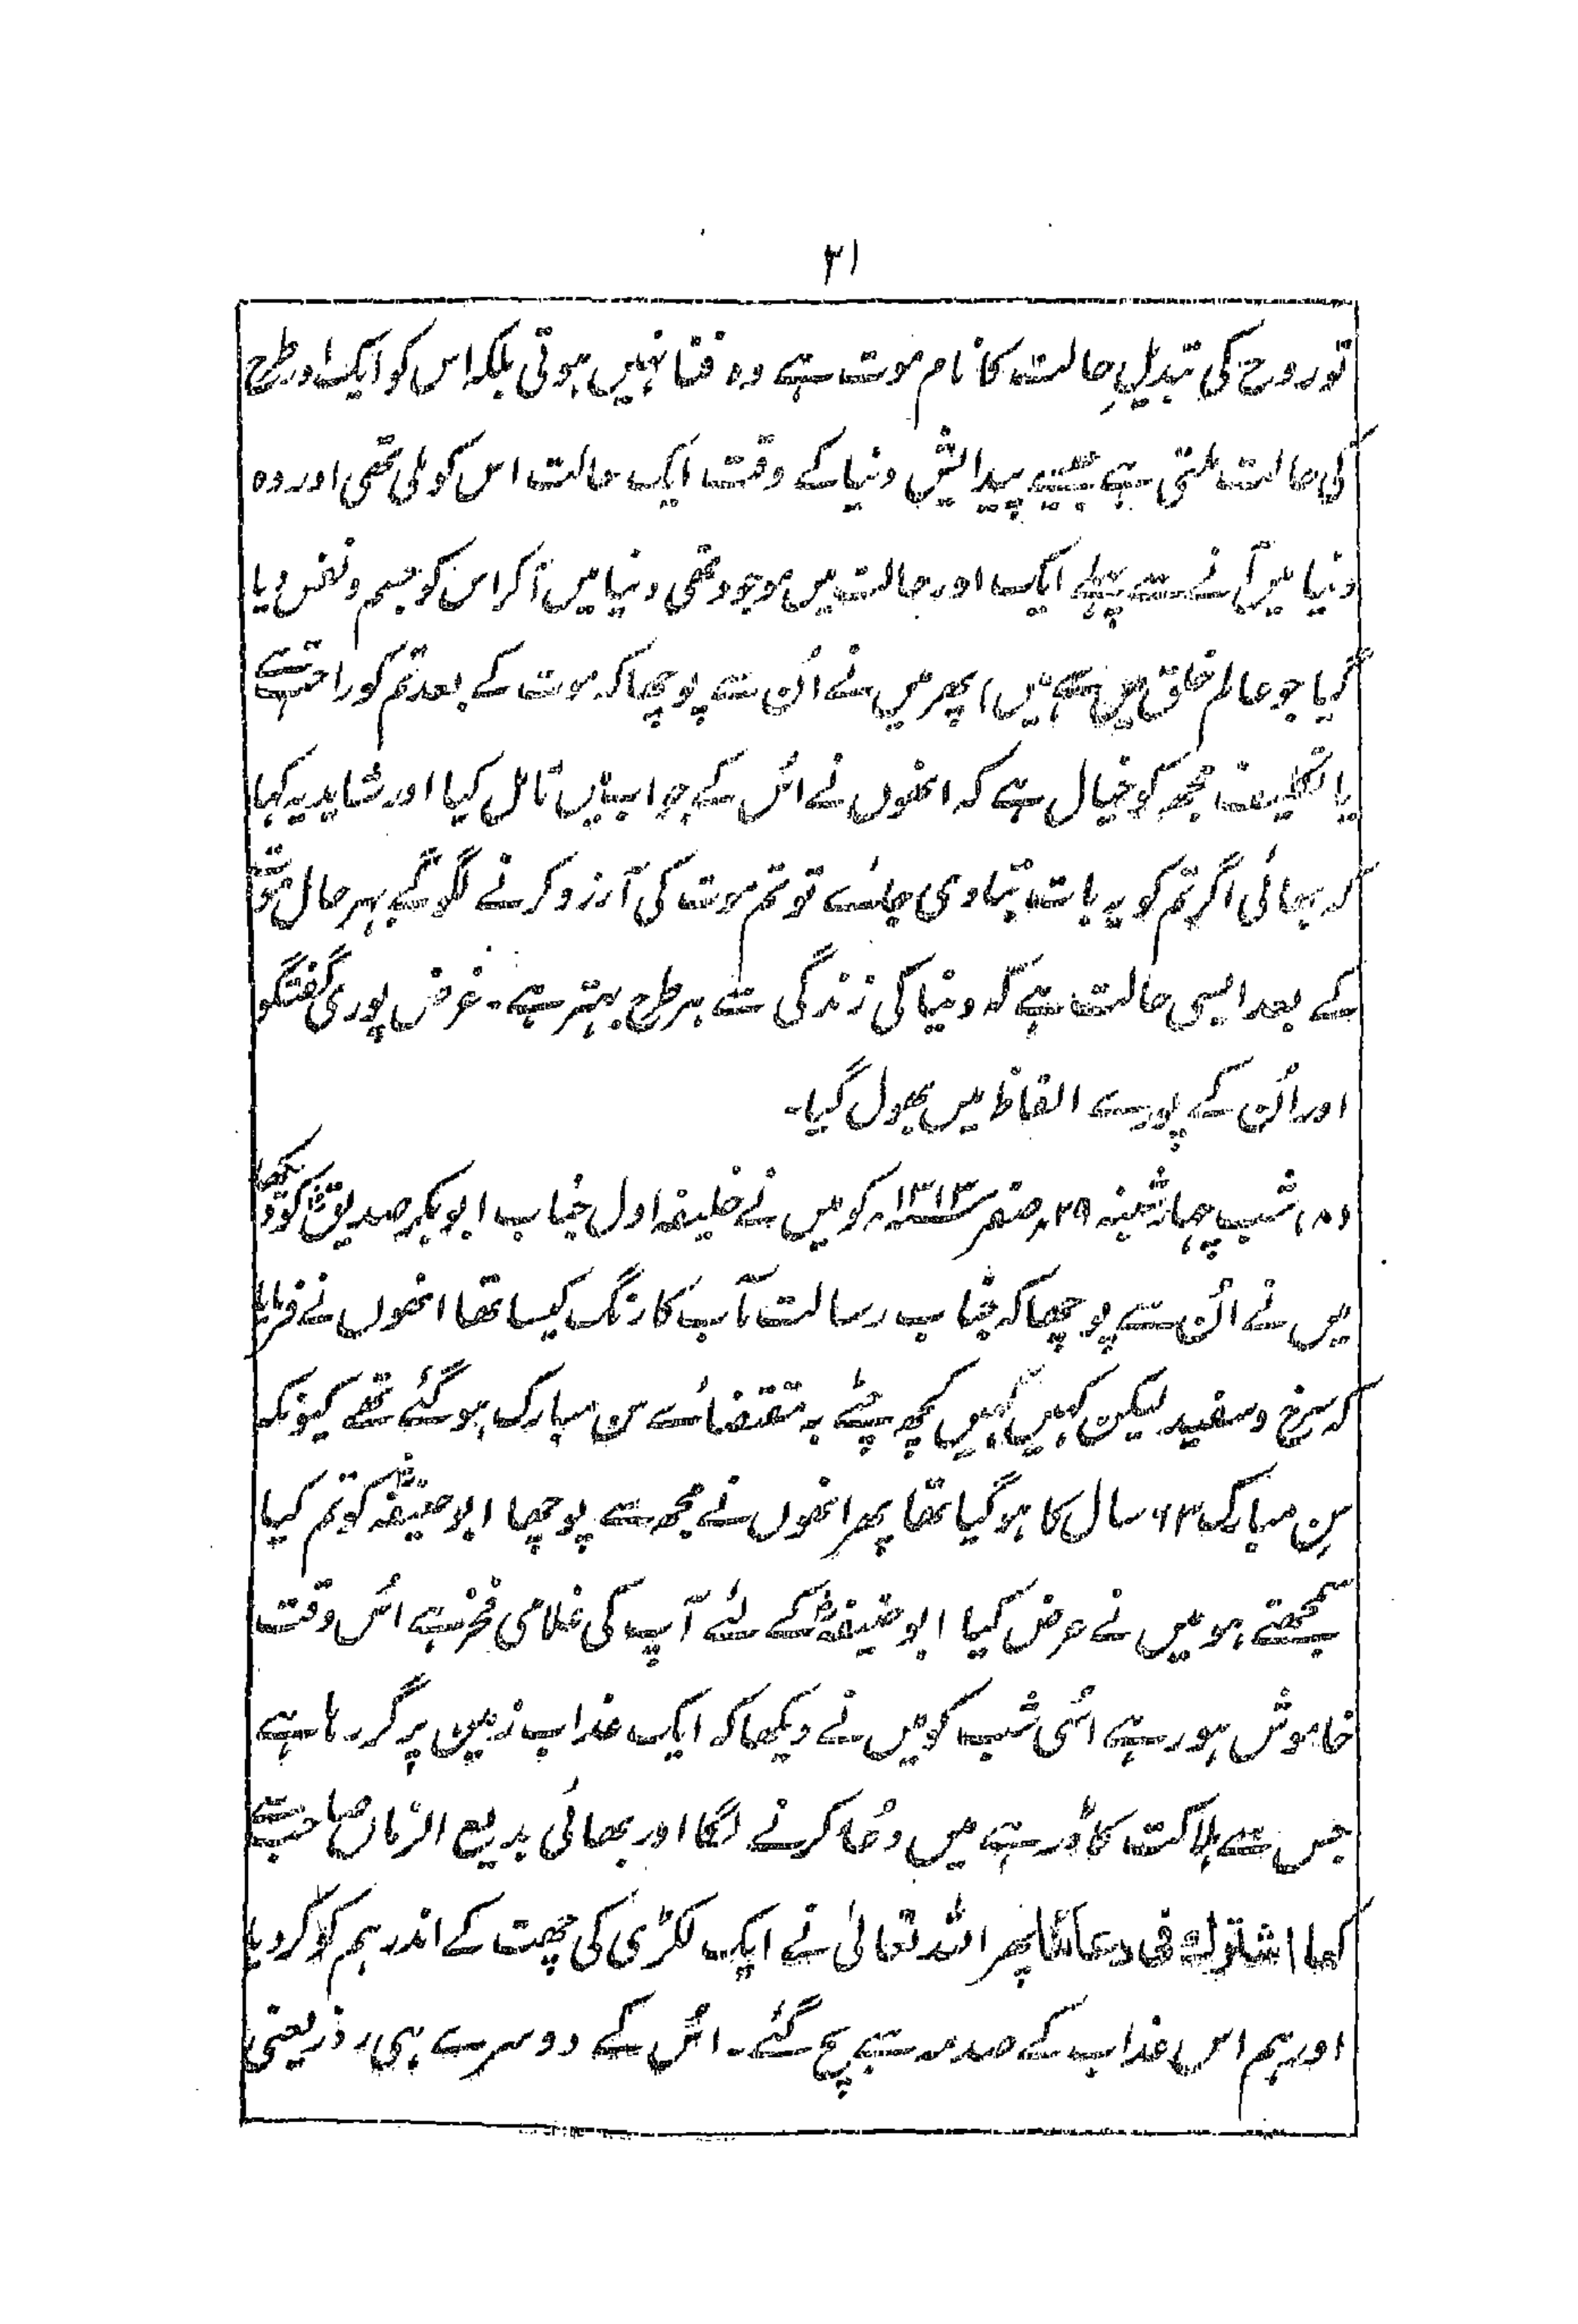 ۲۱
تو روح کی تبدیلِ حالت کا نام موت ہے وہ فنا نہیں ہوتی بلکہ اس کو ایک اور طرح
کی حالت ملتی ہے جیسے پیدایش دنیا کے وقت ایک حالت اس کو ملی تھی اور وہ
دنیا میں آنے سے پہلے ایک اور حالت میں موجود تھی دنیا میں آکر اس کو جسم و نفس دیا
گیا جو عالم خلق میں سے ہیں، پھر میں نے اُن سے پوچھا کہ موت کے بعد تم کو راحت ہے
یا تکلیف، مجھ کو خیال ہے کہ انھوں نے اس کے جواب میں تامل کیا اور شاید یہ کہا
کہ بھائی اگر تم کو یہ بات بتا دی جائے تو تم موت کی آرزو کرنے لگو گے بہر حال موت
کے بعد ایسی حالت ہے کہ دنیا کی زندگی سے ہر طرح بہتر ہے۔ غرض پوری گفتگو
اور اُن کے پورے الفاظ میں بھول گیا۔
(۸) شب چہارشنبہ ۲۹ صفر ۱۳۱۳ھ کو میں نے خلیفہ اول جناب ابوبکر صدیقؓ کو دیکھا
میں نے اُن سے پوچھا کہ جناب رسالت مآب کا رنگ کیسا تھا انھوں نے فرمایا
کہ سرخ و سفید لیکن کہیں کہیں کچھ چٹے بہ مقتضائے سن مبارک ہو گئے تھے کیونکہ
سِن مبارک ۶۳ سال کا ہو گیا تھا پھر انھوں نے مجھ سے پوچھا ابو حنیفہؒ کو تم کیا
سمجھتے ہو میں نے عرض کیا ابو حنیفہؒ کے لئے آپ کی غلامی فخر ہے اُس وقت
خاموش ہو رہے اسی شب کو میں نے دیکھا کہ ایک عذاب زمین پر گر رہا ہے
جس سے ہلاکت کا ڈر ہے میں دعا کرنے لگا اور بھائی بدیع الزماں صاحب سے
کہا اشترك فى دعائنا پھر اللہ تعالیٰ نے ایک لکڑی کی چھت کے اندر ہم کو کر دیا
اور ہم اس عذاب کے صدمہ سے بچ گئے۔ اس کے دوسرے ہی روز یعنی